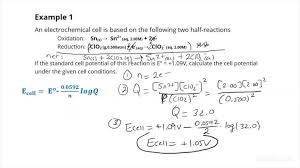 Example 1
An electrochemical cell is based on the following two half-reactions
Oxidation: Sn(s) → Sn²⁺(aq, 2.00M) + 2e⁻
Reduction: ClO₂(g, 0.500atm) + e⁻ → ClO₂⁻(aq, 2.00M)
net: Sn(s) + 2ClO₂(g) → Sn²⁺(aq) + 2ClO₂⁻(aq)
If the standard cell potential of this reaction is E° = +1.09V, calculate the cell potential
under the given cell conditions.
① n = 2e⁻
Ecell = E° - 0.0592/n logQ
② Q = [Sn²⁺][ClO₂⁻]²/P(ClO₂)² = [2.00][2.00]²/(0.500)²
Q = 32.0
③ Ecell = +1.09V - 0.0592/2 log(32.0)
Ecell = +1.05V